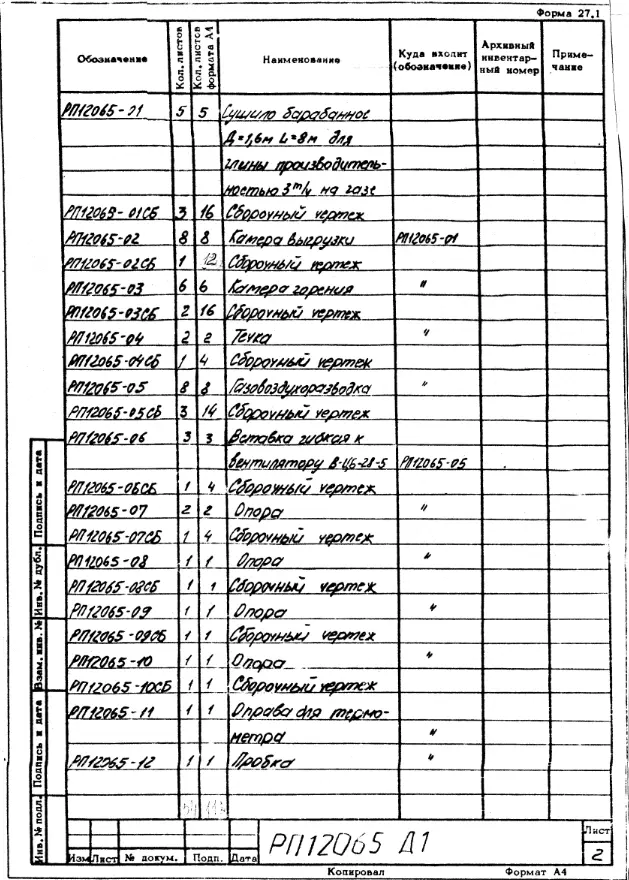 Форма 27.1
Обозначение Кол. листов Кол. листов формата А4 Наименование Куда входит (обозначение) Архивный инвентарный номер Примечание
РП12065-01 5 5 Сушило барабанное
Д=1,6м L=8м для
глины производитель-
ностью 3т/ч на газе
РП12065-01СБ 3 16 Сборочный чертеж
РП12065-02 8 8 Камера выгрузки РП12065-01
РП12065-02СБ 1 12 Сборочный чертеж
РП12065-03 6 6 Камера горения "
РП12065-03СБ 2 16 Сборочный чертеж
РП12065-04 2 2 Течка "
РП12065-04СБ 1 4 Сборочный чертеж
РП12065-05 8 8 Газовоздухоразводка "
РП12065-05СБ 3 14 Сборочный чертеж
РП12065-06 3 3 Вставка гибкая к
вентилятору В-Ц6-28-5 РП12065-05
РП12065-06СБ 1 4 Сборочный чертеж
РП12065-07 2 2 Опора "
РП12065-07СБ 1 4 Сборочный чертеж
РП12065-08 1 1 Опора "
РП12065-08СБ 1 1 Сборочный чертеж
РП12065-09 1 1 Опора "
РП12065-09СБ 1 1 Сборочный чертеж
РП12065-10 1 1 Опора "
РП12065-10СБ 1 1 Сборочный чертеж
РП12065-11 1 1 Оправа для термо-
метра "
РП12065-12 1 1 Пробка "
Инв. № подл. Подпись и дата Взам. инв. № Инв. № дубл. Подпись и дата
Изм Лист № докум. Подп. Дата
РП12065 Д1
Лист
2
Копировал Формат А4